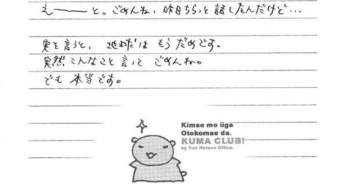 えーーーと。ごめんね、昨日ちらっと話したんだけど…
実を言うと、地球はもうだめです。
突然こんなこと言ってごめんね。
でも本当です。
Kimae mo iiga
Otokomae da.
KUMA CLUB!
by Yuri Notsuo Office.